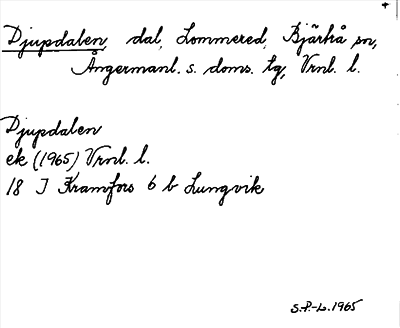 Djupdalen, dal, Lommered, Bjärtrå sn,
Ångermanl. s. doms. tg, Vrnl. l.
Djupdalen
ek (1965) Vrnl. l.
18 I Kramfors 6 b Lungvik
S.P.-L. 1965